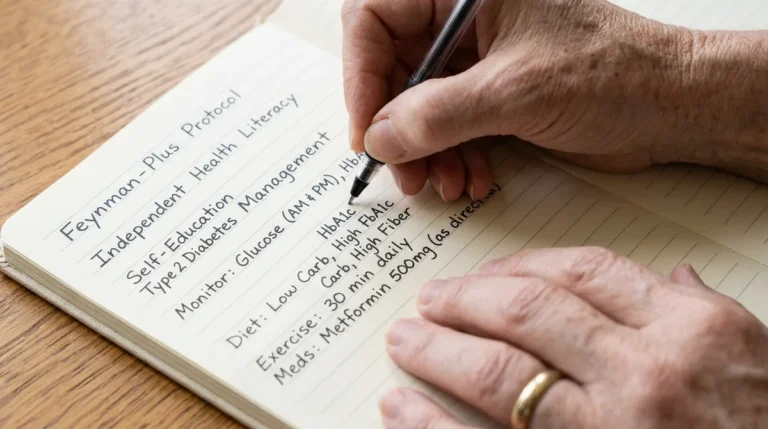 Feynman-Plus Protocol
Independent Health Literacy
Self-Education
Type 2 Diabetes Management
Monitor: Glucose (AM & PM), HbA
HbA1c
Diet: Low Carb, High FbA1c
Carb, High Fiber
Exercise: 30 min daily
Meds: Metformin 500mg (as